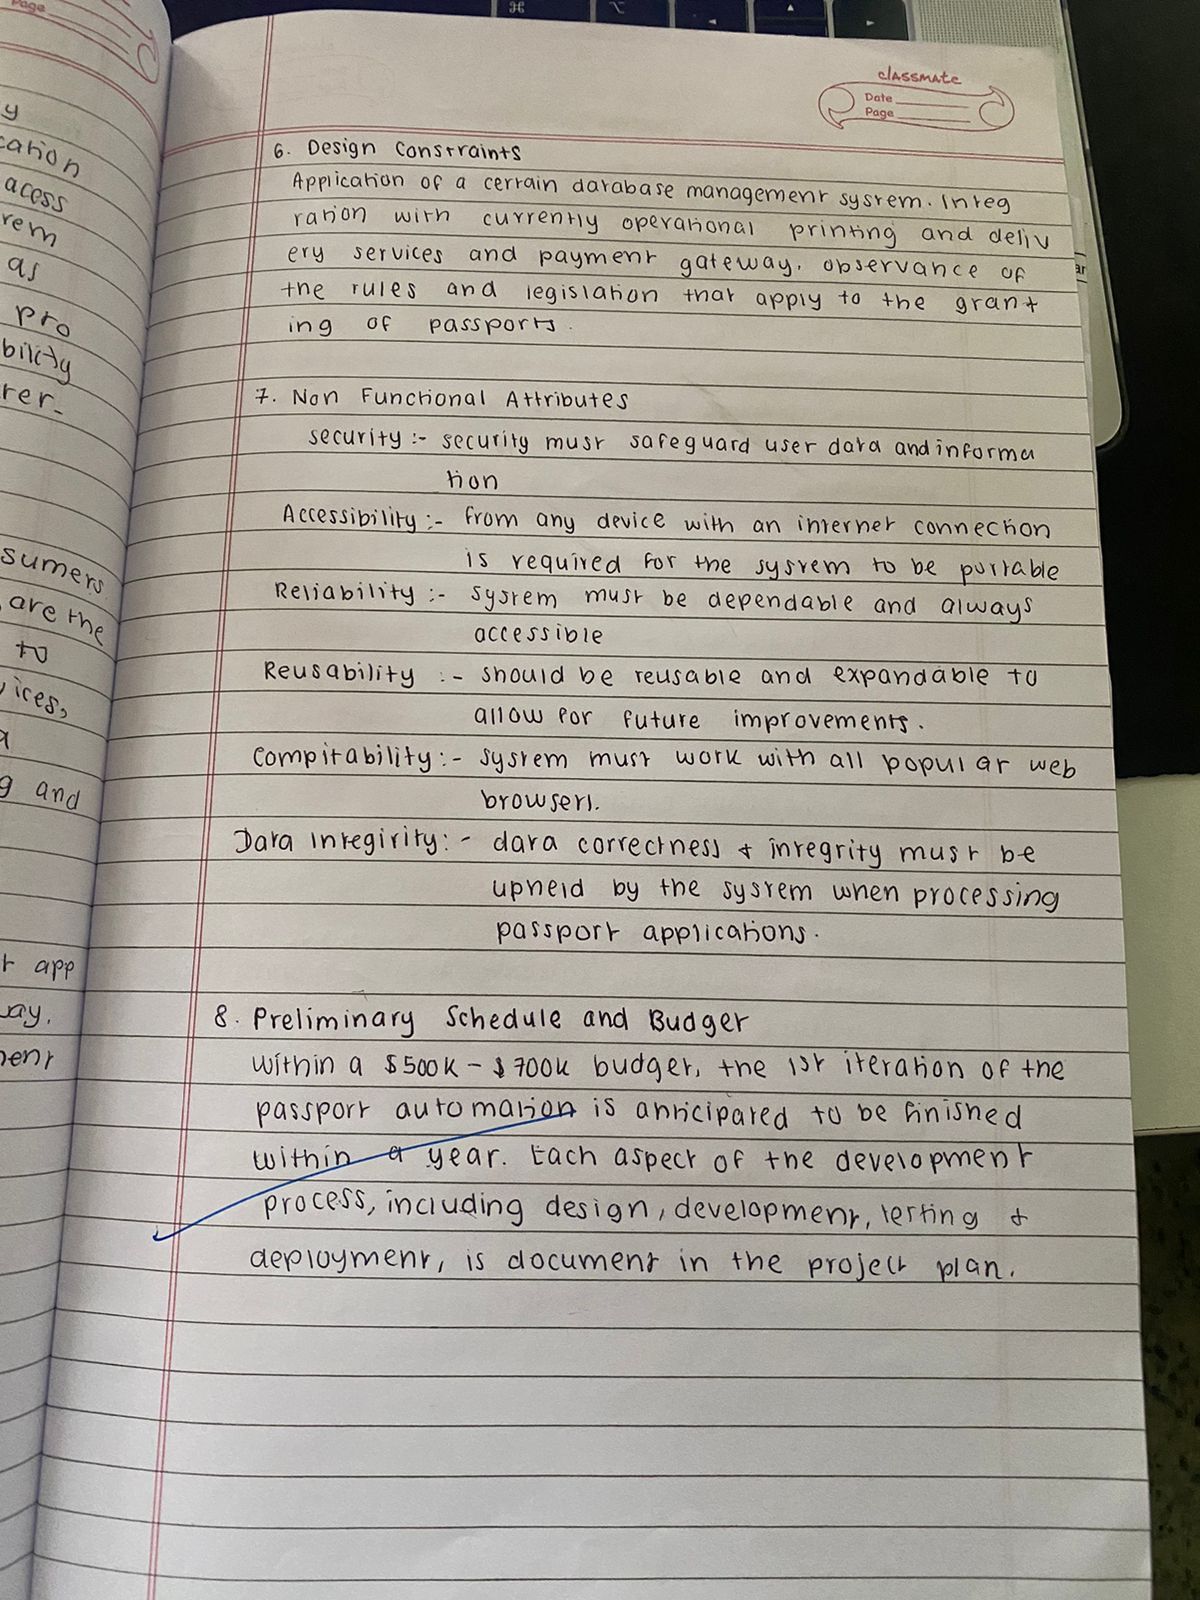 Page
y
cation
acess
rem
as
pro
bility
rer-
sumers
are the
to
ices,
g and
r app
way.
ment
classmate
Date
Page
6. Design Constraints
Application of a certain database management system. Integ
ration with currently operational printing and deliv
ery services and payment gateway. observance of
the rules and legislation that apply to the grant
ing of passports.
7. Non Functional Attributes
security :- security must safeguard user data and informa
tion
Accessibility :- from any device with an internet connection
is required for the system to be portable
Reliability :- system must be dependable and always
accessible
Reusability :- should be reusable and expandable to
allow for future improvements.
Compitability :- system must work with all popular web
browsers.
Data Integirity :- data correctness & integrity must be
upheld by the system when processing
passport applications.
8. Preliminary Schedule and Budget
Within a $500K - $700K budget, the 1st iteration of the
passport automation is anticipated to be finished
within a year. Each aspect of the development
process, including design, development, testing &
deployment, is document in the project plan.